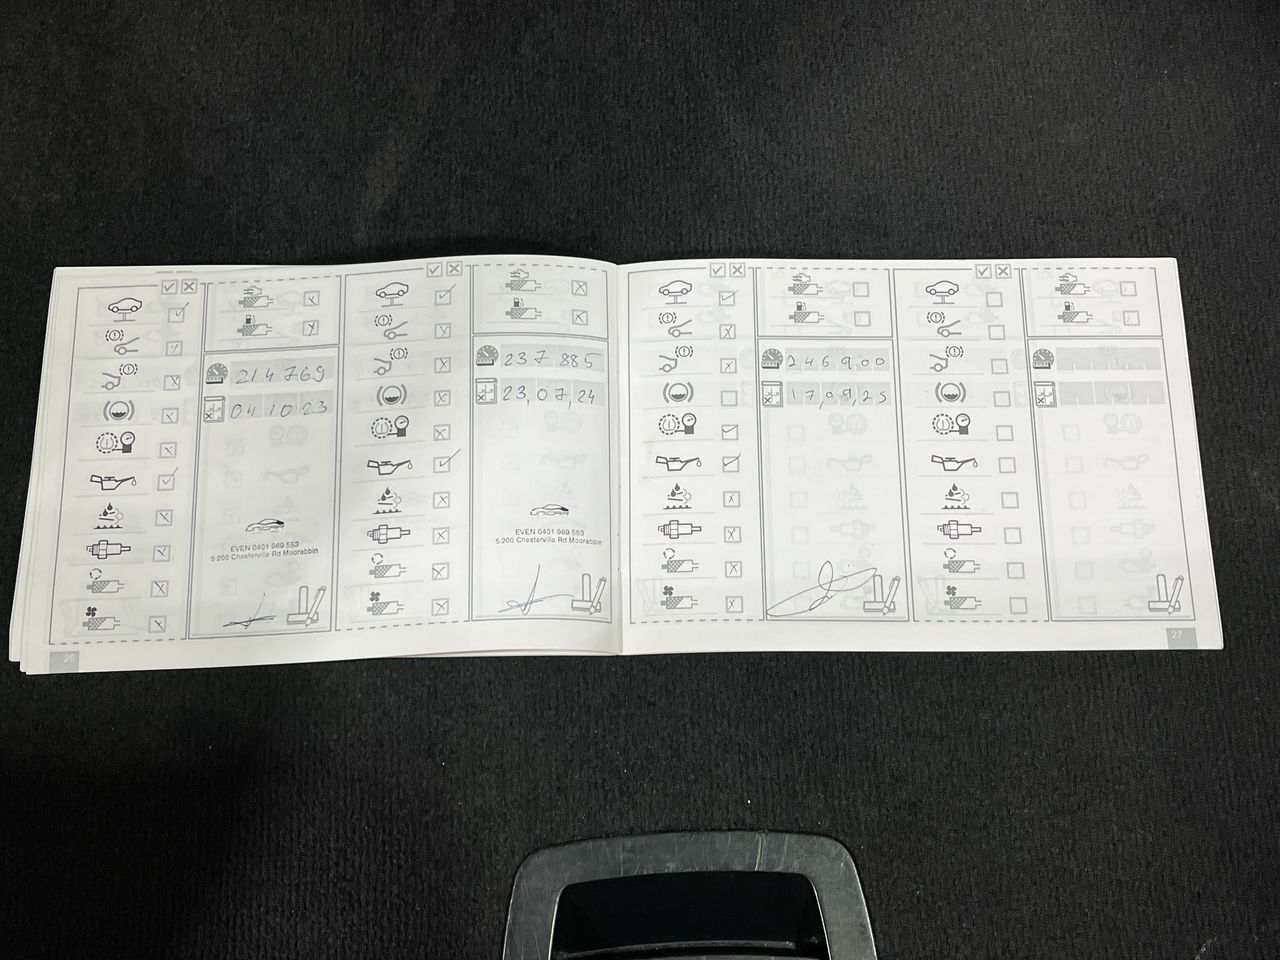 214769
04 10 23
EVEN 0401 969 553
5-200 Chesterville Rd Moorabbin
237 885
23,07,24
EVEN 0401 969 553
5-200 Chesterville Rd Moorabbin
246900
26
27